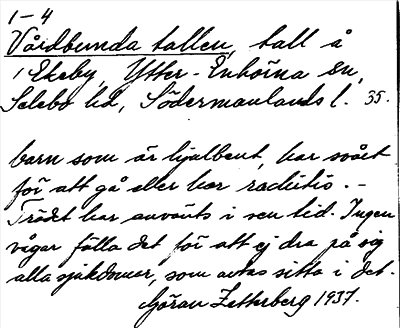 1-4
Vårdbunda tallen, tall å
Ekeby, Ytter-Enhörna sn,
Selebo hd, Södermanlands l. 35.
barn som är hjulbent, har svårt
för att gå eller har rachitis. -
Trädet har använts i sen tid. Ingen
vågar fälla det för att ej dra på sig
alla sjukdomar, som antas sitta i det.
Göran Zetterberg 1937.